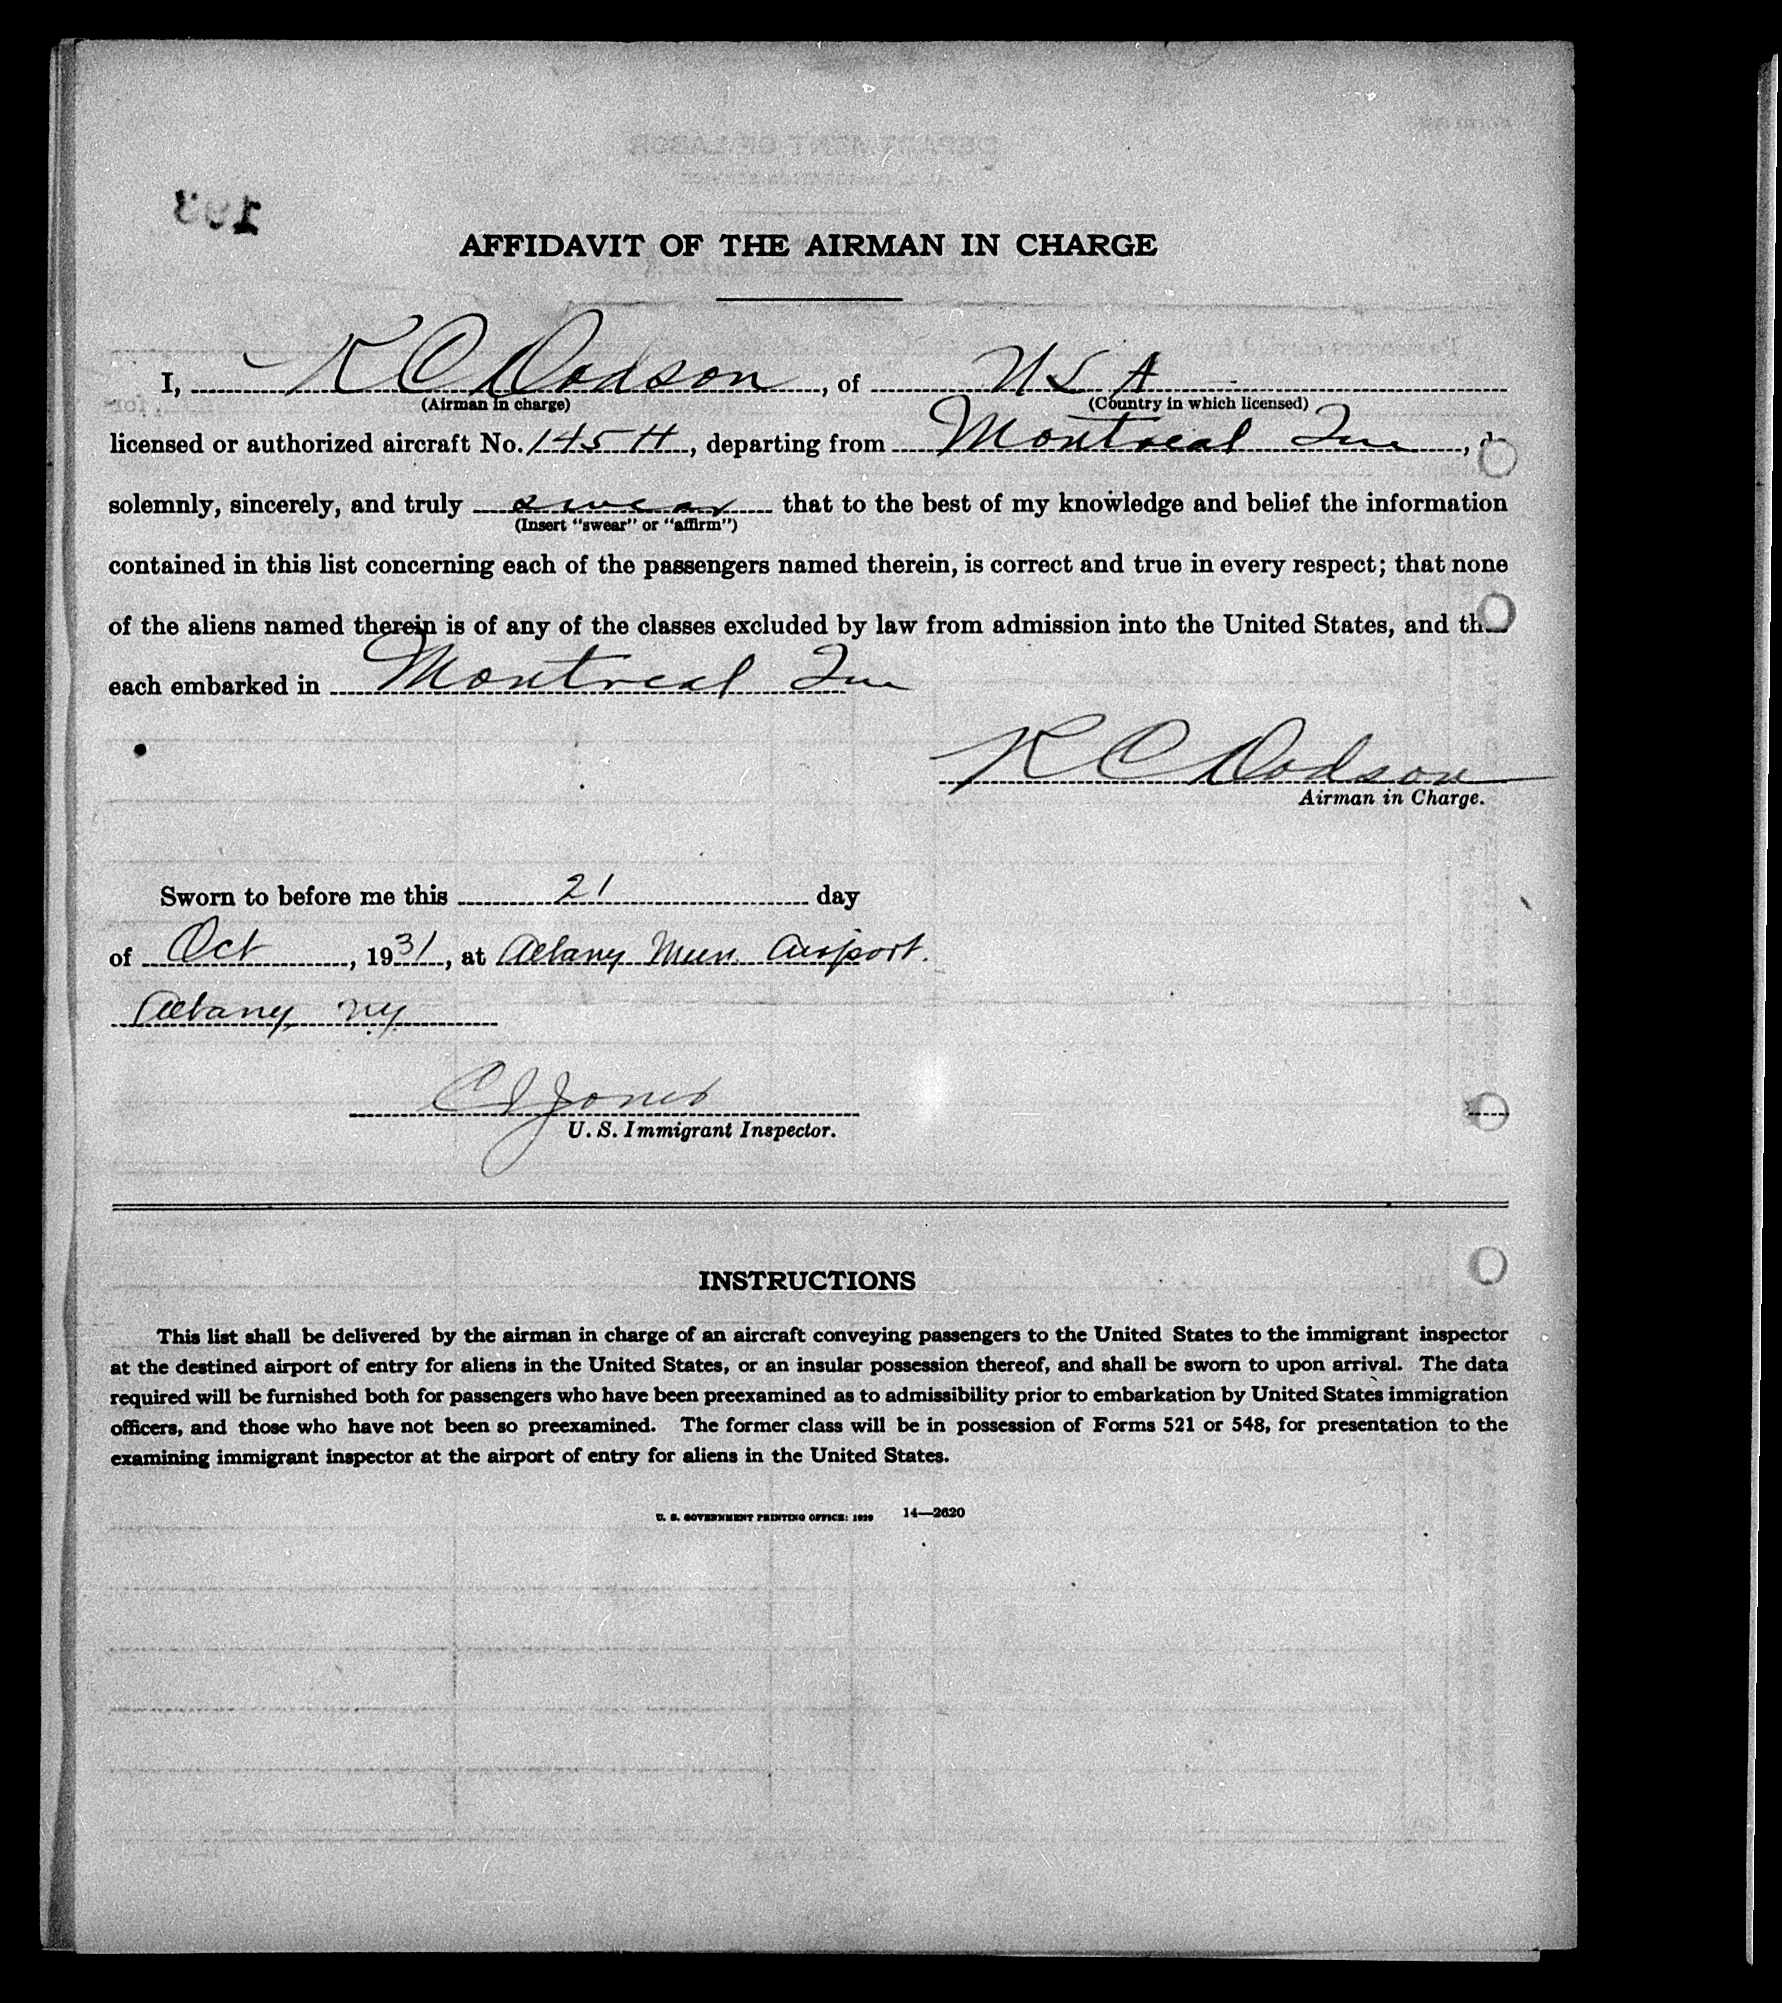 193
AFFIDAVIT OF THE AIRMAN IN CHARGE
I, K C Dodson, of U S A
(Airman in charge) (Country in which licensed)
licensed or authorized aircraft No. 145H, departing from Montreal Que,
solemnly, sincerely, and truly swear that to the best of my knowledge and belief the information
(Insert "swear" or "affirm")
contained in this list concerning each of the passengers named therein, is correct and true in every respect; that none
of the aliens named therein is of any of the classes excluded by law from admission into the United States, and
each embarked in Montreal Que
K C Dodson
Airman in Charge.
Sworn to before me this 21 day
of Oct, 1931, at Albany Mun. Airport.
Albany, NY.
C I Jones
U. S. Immigrant Inspector.
INSTRUCTIONS
This list shall be delivered by the airman in charge of an aircraft conveying passengers to the United States to the immigrant inspector
at the destined airport of entry for aliens in the United States, or an insular possession thereof, and shall be sworn to upon arrival. The data
required will be furnished both for passengers who have been preexamined as to admissibility prior to embarkation by United States immigration
officers, and those who have not been so preexamined. The former class will be in possession of Forms 521 or 548, for presentation to the
examining immigrant inspector at the airport of entry for aliens in the United States.
U. S. GOVERNMENT PRINTING OFFICE: 1929 14—2620